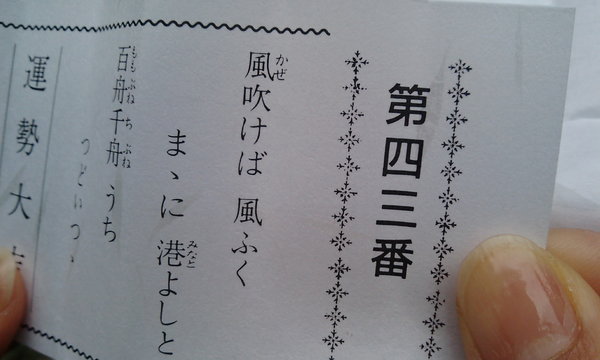 第四三番
風吹けば 風ふく
まゝに 港よしと
百舟千舟 うち
つどいつゝ
運勢大